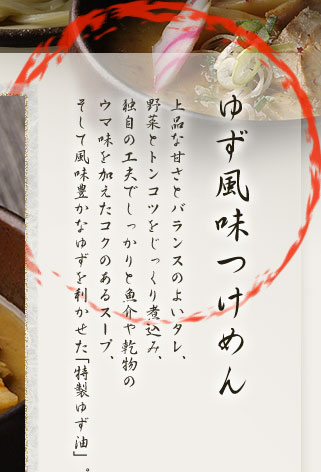 ゆず風味つけめん
上品な甘さとバランスのよいタレ、
野菜とトンコツをじっくり煮込み、
独自の工夫でしっかりと魚介や乾物の
ウマ味を加えたコクのあるスープ、
そして風味豊かなゆずを利かせた「特製ゆず油」。